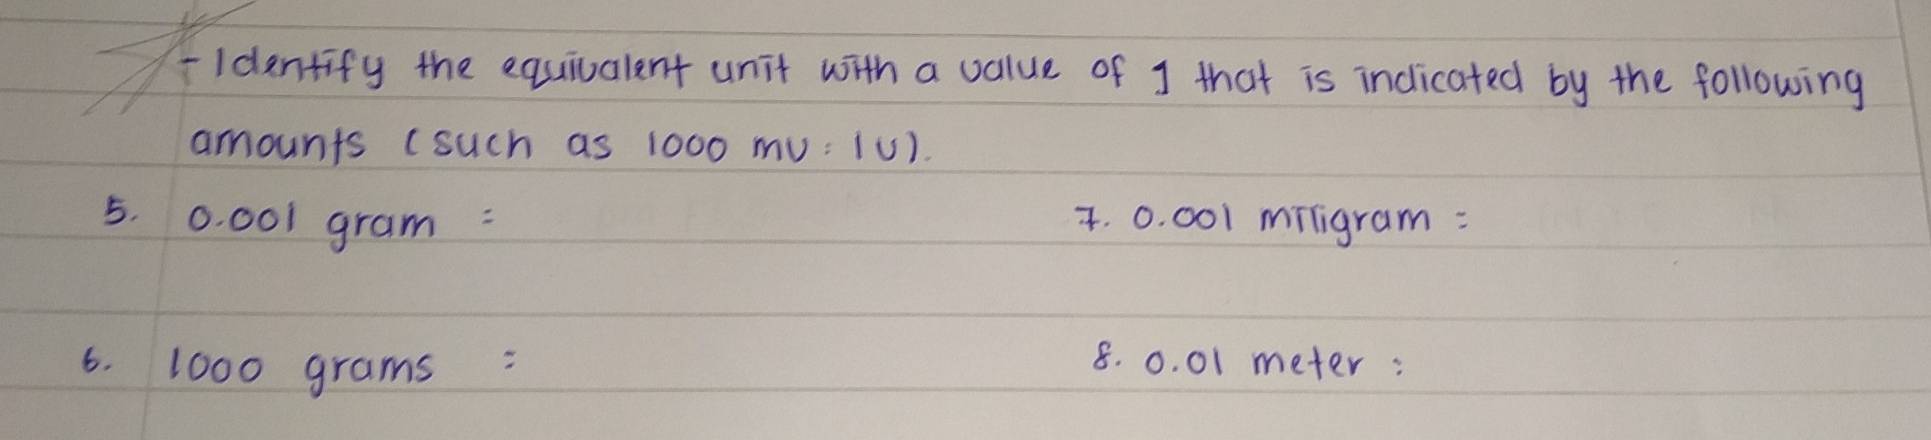 - Identify the equivalent unit with a value of 1 that is indicated by the following
amounts (such as 1000 mU = 1U).
5. 0.001 gram =
7. 0.001 milligram =
6. 1000 grams =
8. 0.01 meter =